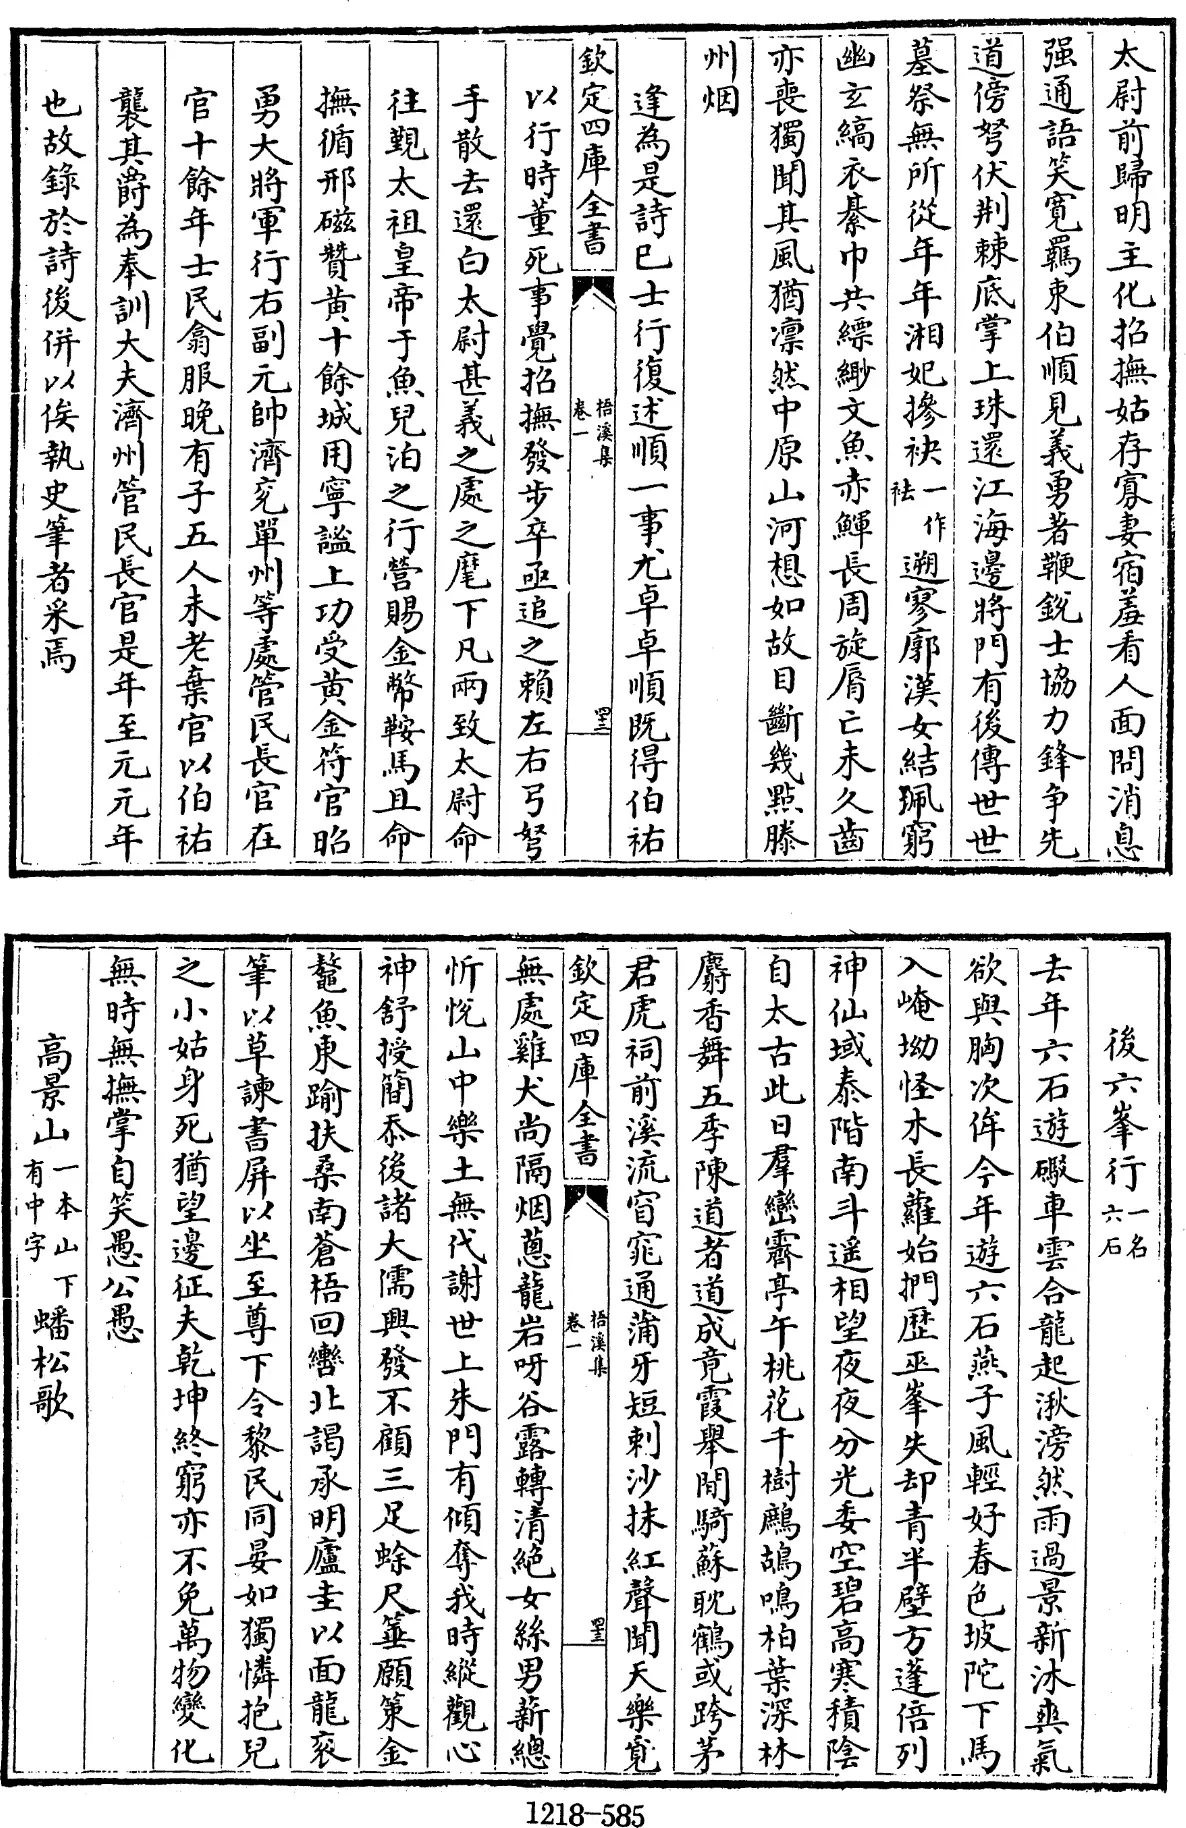 太尉前歸明主化招撫姑存寡妻宿羞看人面問消息
强通語笑寛羈束伯順見義勇著鞭鋭士協力鋒争先
道傍弩伏荆棘底掌上珠還江海邊將門有後傳世世
墓祭無所從年年湘妃摻袂一作袪遡寥廓漢女結珮窮
幽玄縞衣綦巾共縹緲文魚赤鯶長周旋脣亡未久齒
亦喪獨聞其風猶凛然中原山河想如故目斷幾點滕
州烟
逢為是詩已士行復述順一事尤卓卓順既得伯祐
欽定四庫全書
梧溪集
卷一
四三
以行時董死事覺招撫發步卒亟追之賴左右弓弩
手散去還白太尉甚義之處之麾下凡兩致太尉命
往覲太祖皇帝于魚兒泊之行營賜金幣鞍馬且命
撫循邢磁贊黄十餘城用寧謐上功受黄金符官昭
勇大將軍行右副元帥濟兖單州等處管民長官在
官十餘年士民翕服晚有子五人未老棄官以伯祐
襲其爵為奉訓大夫濟州管民長官是年至元元年
也故錄於詩後併以俟執史筆者采焉
後六峯行一名六石
去年六石遊礮車雲合龍起湫滂然雨過景新沐爽氣
欲與胸次侔今年遊六石燕子風輕好春色坡陀下馬
入崦坳怪木長蘿始捫歴巫峯失却青半壁方蓬倍列
神仙域泰階南斗遥相望夜夜分光委空碧高寒積陰
自太古此日羣巒霽亭午桃花千樹鷓鴣鳴柏葉深林
麝香舞五季陳道者道成竟霞舉閒騎蘇耽鶴或跨茅
君虎祠前溪流窅窕通蒲牙短刺沙抹紅聲聞天樂覔
欽定四庫全書
梧溪集
卷一
四三
無處雞犬尚隔烟蔥蘢岩呀谷露轉清絶女絲男薪總
忻悅山中樂土無代謝世上朱門有傾奪我時縱觀心
神舒授簡忝後諸大儒興發不顧三足蜍尺箠願策金
鼇魚東踰扶桑南蒼梧回轡北謁承明廬圭以面龍衮
筆以草諫書屏以坐至尊下令黎民同晏如獨憐抱兒
之小姑身死猶望邊征夫乾坤終窮亦不免萬物變化
無時無撫掌自笑愚公愚
高景山一本山下有中字蟠松歌
1218-585